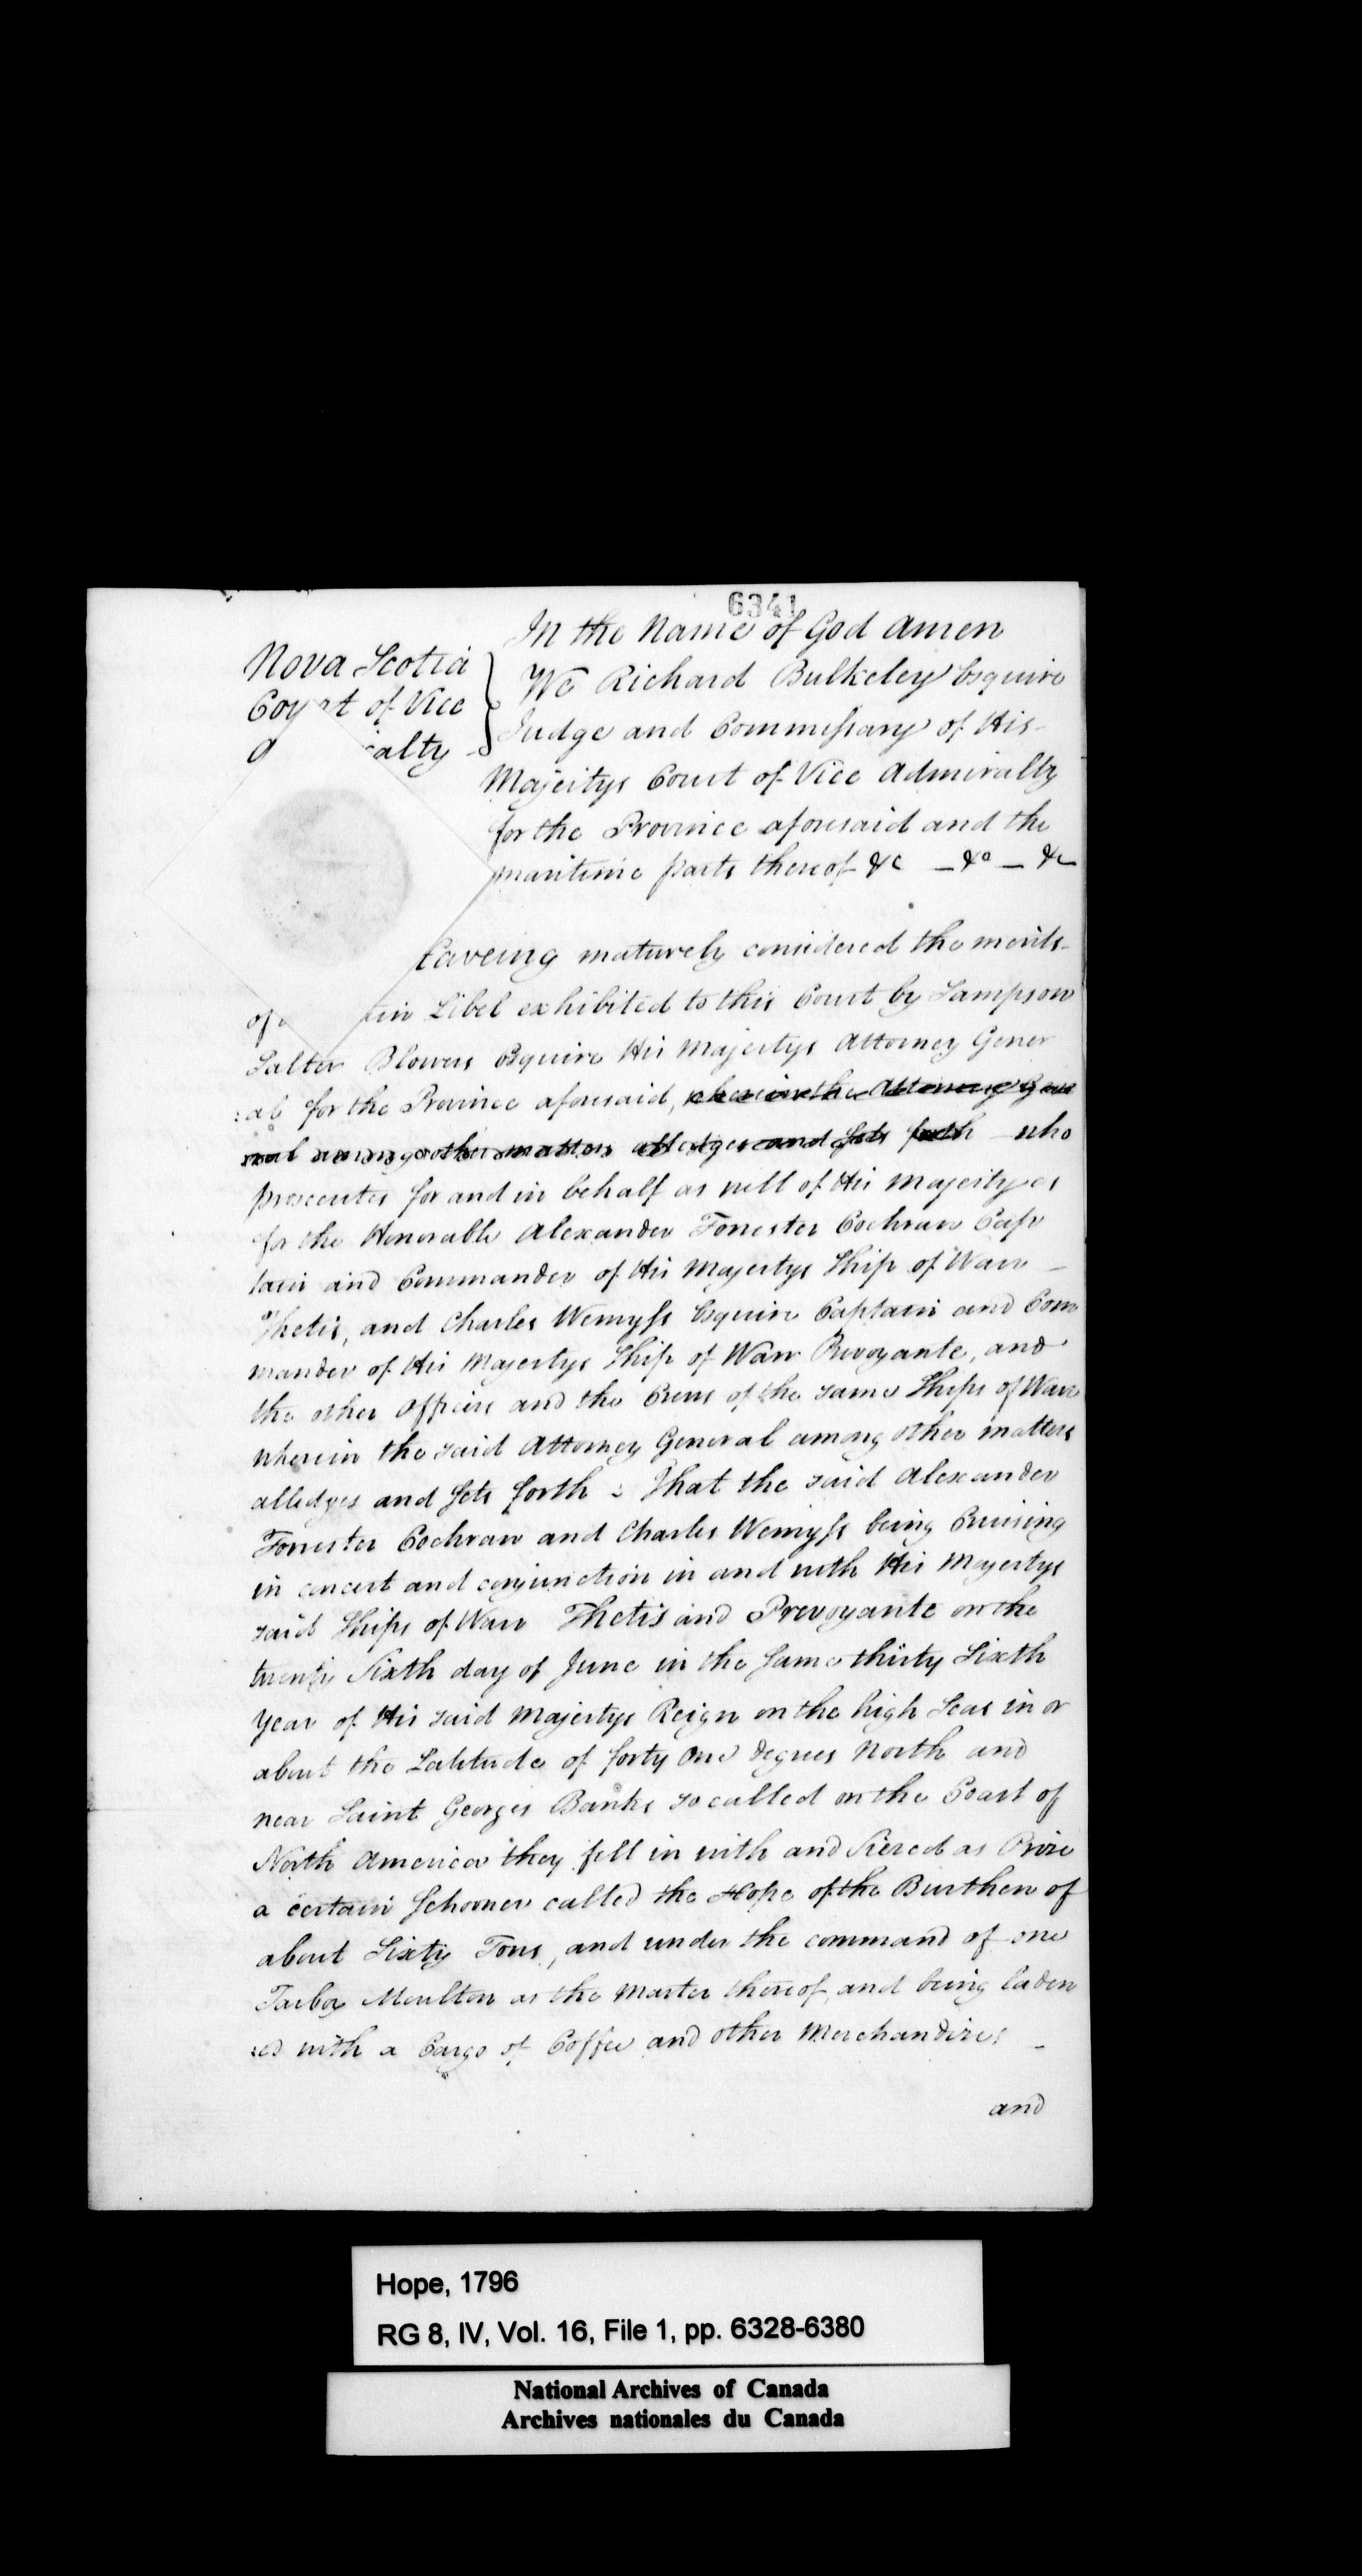 6341
In the Name of God Amen
Nova Scotia
Court of Vice
alty
We Richard Bulkeley Esquire
Judge and Commissary of His
Majestys Court of Vice Admiralty
for the Province aforesaid and the
maritime parts thereof &c – &c – &c
haveing maturely considered the merits
of Libel exhibited to this Court by Sampson
Salter Blowers Esquire His Majestys Attorney Gener
:al for the Province aforesaid, wherein the Attorney Gene
:ral among other matters alledges and sets forth – who
prosecutes for and in behalf as well of His Majesty as
for the Honorable Alexander Forrester Cochran Cap
tain and Commander of His Majestys Ship of Warr –
Thetis, and Charles Wemyss Esquire Captain and Com
mander of His Majestys Ship of Warr Prevoyante, and
the other Officers and the Crews of the same Ships of Warr
wherein the said Attorney General among other matters
alledges and sets forth : That the said Alexander
Forrester Cochran and Charles Wemyss being Cruising
in concert and conjunction in and with His Majestys
said Ships of Warr Thetis and Prevoyante on the
twenty Sixth day of June in the same thirty Sixth
Year of His said Majestys Reign on the high Seas in or
about the Latitude of forty one degrees North and
near Saint Georges Banks so called on the Coast of
North America they fell in with and Siezed as Prize
a certain Schooner called the Hope of the Burthen of
about Sixty Tons, and under the command of one
Tarbox Moulton as the Master thereof, and being laden
:ed with a Cargo of Coffee and other Merchandizes –
and
Hope, 1796
RG 8, IV, Vol. 16, File 1, pp. 6328-6380
National Archives of Canada
Archives nationales du Canada